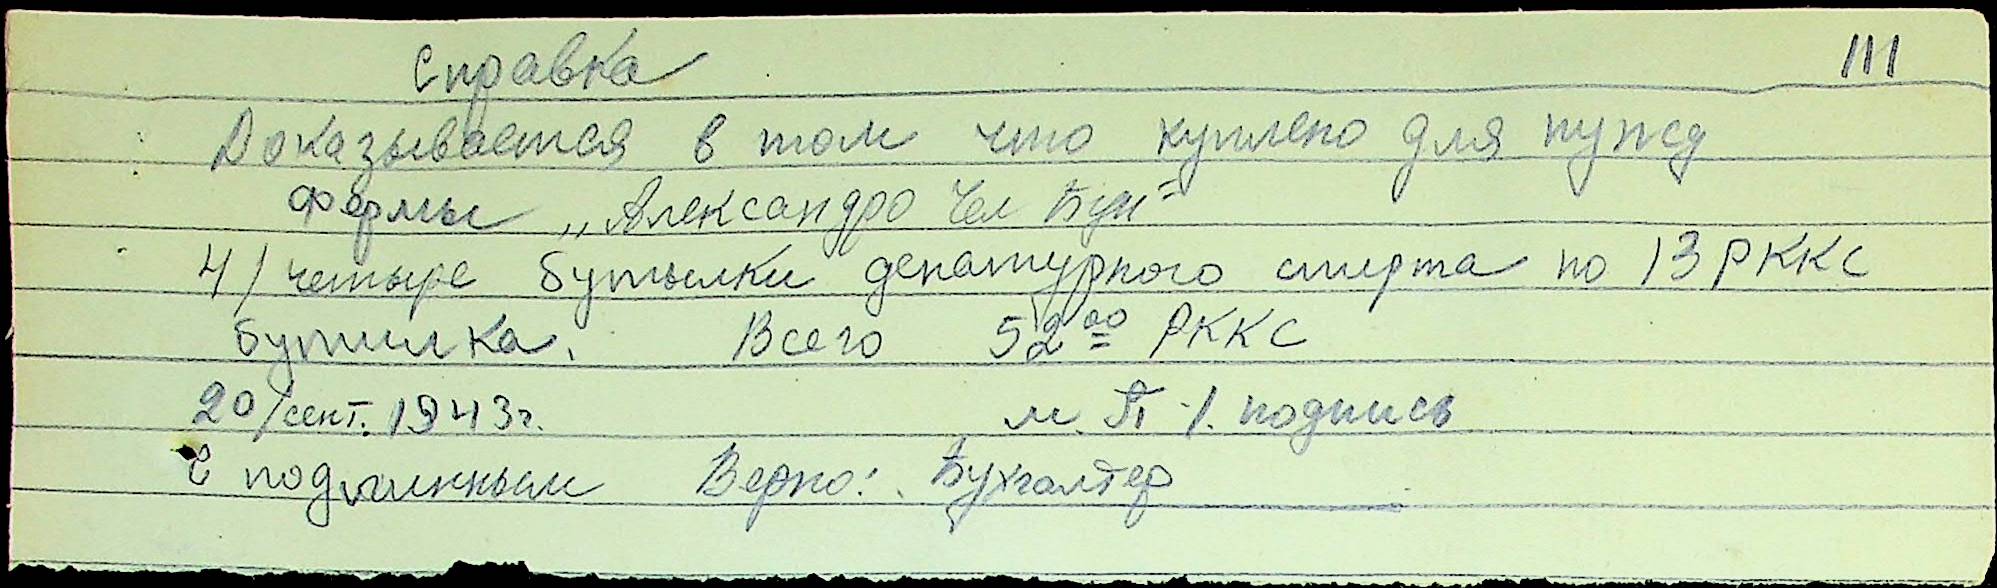 Справка
111
Доказывается в том что куплено для нужд
фермы „Александро Чел Бун"
4/ четыре бутылки денатурного спирта по 13 РККС
бутилка. Всего 52 00 РККС
20/сент. 1943г. м. П -/. подпись
С подлинным Верно: Бухгалтер